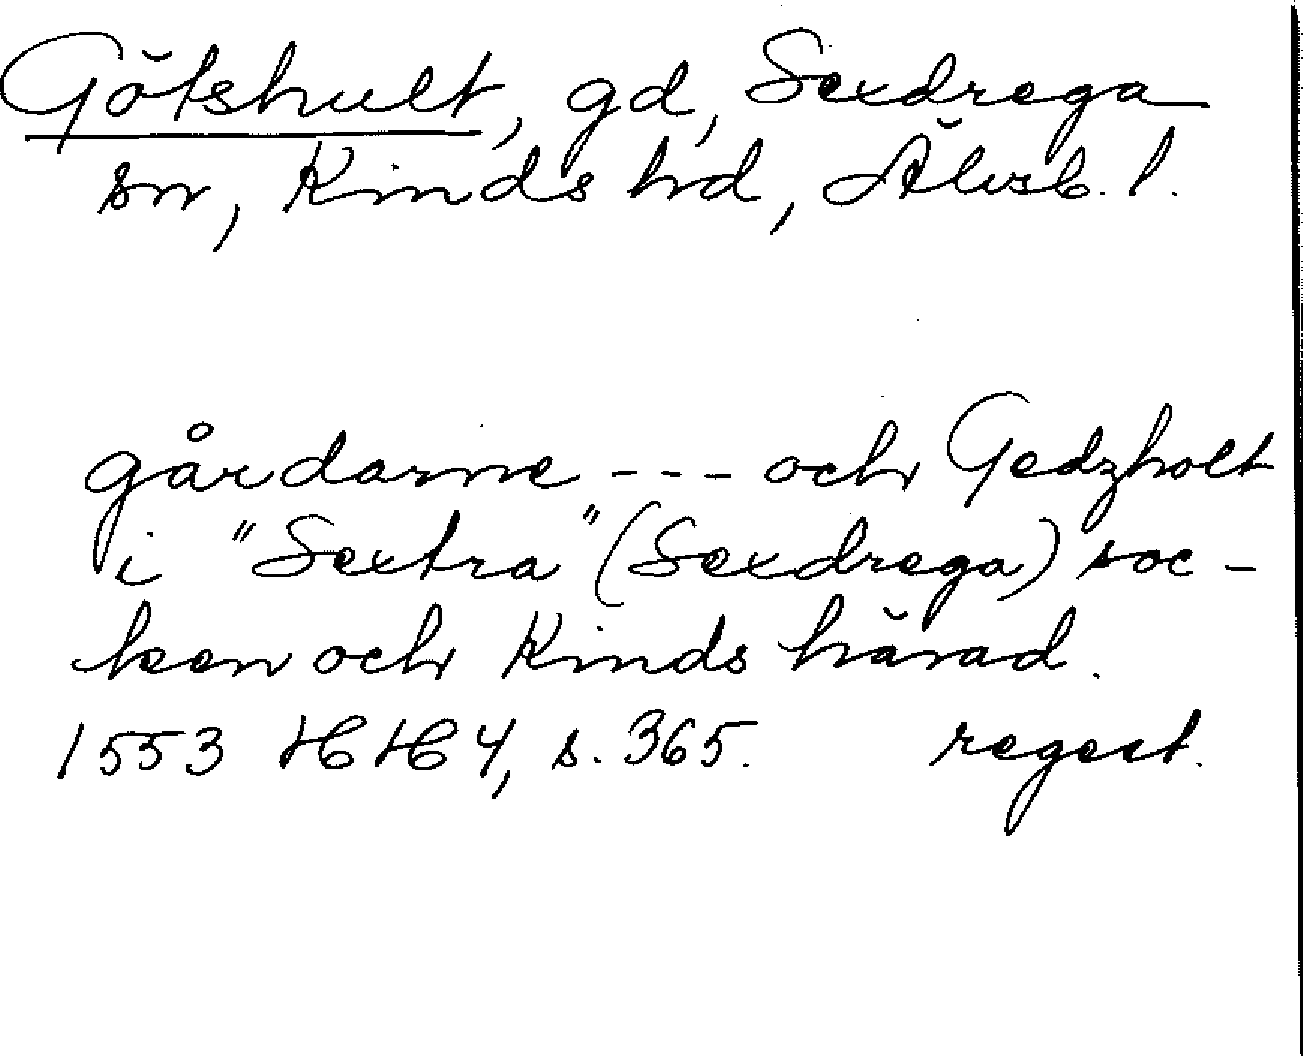 Götshult, gd, Sexdrega
sn, Kinds hd, Älvsb. l.
gårdarne --- och Gedzholt
i "Sextra" (Sexdrega) soc-
ken och Kinds härad.
1553 HH 4, s. 365. regest.